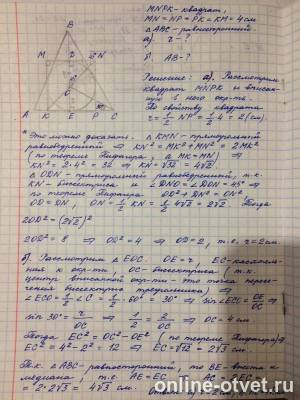 MNPK - квадрат,
MN = NP = PK = KM = 4 см
△ABC - равносторонний
а). r - ?
β. AB - ?
B
M
N
O
A K E P C
Решение: а). Рассмотрим
квадрат MNPK и вписан-
ную в него окр-ть.
По свойству квадрата
r = 1/2 NP = 1/2 · 4 = 2 (см)
Это можно доказать. △KMN - прямоугольный
равнобедренный ⇒ KN² = MK² + MN² = 2MK²
(по теореме Пифагора, △ MK = MN) ⇒
KN² = 2·4² = 32 ⇒ KN = √32 = 4√2.
△ ODN - прямоугольный равнобедренный, т.к.
KN - биссектриса и ∠DNO = ∠DON = 45° ⇒
по теореме Пифагора OD² + DN² = ON²
OD = DN, ON = 1/2 KN = 1/2 4√2 = 2√2. Тогда
2OD² = (2√2)²
2OD² = 8 ⇒ OD² = 4 ⇒ OD = 2, т.е. r = 2 см.
б). Рассмотрим △EOC. OE = r, EC - касатель-
ная к окр-ти, OC - биссектриса (т.к.
центр вписанной окр-ти - это точка пересе-
чения биссектрис треугольника) ⇒
∠ECO = 1/2 ∠C = 1/2 · 60° = 30° ⇒ sin∠ECO = OE/OC ⇒
sin 30° = r/OC ⇒ 1/2 = 2/OC ⇒ OC = 4 см
Тогда EC² = OC² - OE² (по теореме Пифагора) ⇒
EC² = 4² - 2² = 12 ⇒ EC = √12 = 2√3 см.
Т.к. △ABC - равносторонний, то BE - высота и
медиана, т.е. AE = EC ⇒
= 2·2√3 = 4√3 см.
online-otvet.ru